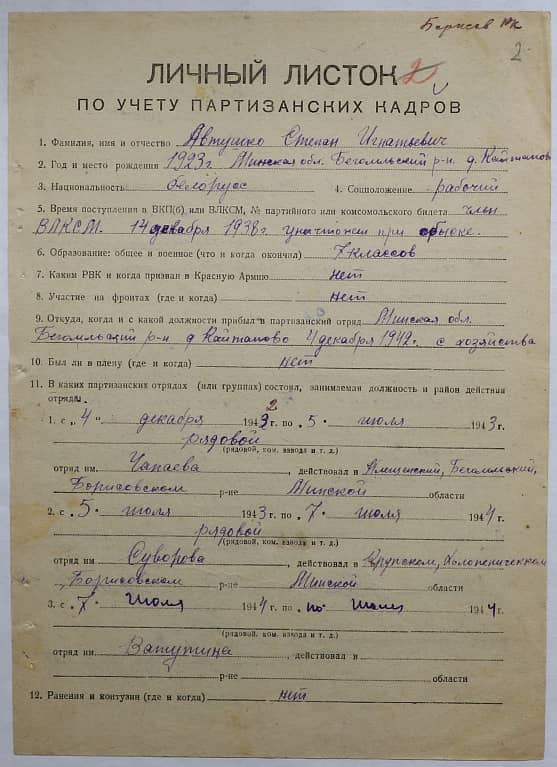 Борисов РК
2
ЛИЧНЫЙ ЛИСТОК 2
ПО УЧЕТУ ПАРТИЗАНСКИХ КАДРОВ
1. Фамилия, имя и отчество Автушко Степан Игнатьевич
2. Год и место рождения 1923 г. Минская обл. Бегомльский р-н. д. Кайтаново
3. Национальность белорус 4. Соцположение рабочий
5. Время поступления в ВКП(б) или ВЛКСМ, № партийного или комсомольского билета член
ВЛКСМ. 14 декабря 1938 г уничтожен при обыске.
6. Образование: общее и военное (что и когда окончил) 7 классов
7. Каким РВК и когда призван в Красную Армию нет
8. Участие на фронтах (где и когда) нет
9. Откуда, когда и с какой должности прибыл в партизанский отряд Минская обл.
Бегомльский р-н д Кайтаново 4 декабря 1942 г. с хозяйства
10. Был ли в плену (где и когда) нет
11. В каких партизанских отрядах (или группах) состоял, занимаемая должность и район действия
отряда.
1. с „4“ декабря 1942 г. по 5 июля 1943 г.
рядовой
(рядовой, ком. взвода и т. д.)
отряд им. Чапаева, действовал в Плещенский, Бегомльский,
Борисовском р-не Минской области
2. с 5 июля 1943 г. по 7 июля 1944 г.
рядовой
(рядовой, ком. взвода и т. д.)
отряд им. Суворова действовал в Крупском, Холопеническом
Борисовском р-не Минской области
3. с 7 июля 1944 г. по июля 1944 г.
(рядовой, ком. взвода и т. д.)
отряд им. Ватутина, действовал в
р-не области
12. Ранения и контузии (где и когда) нет